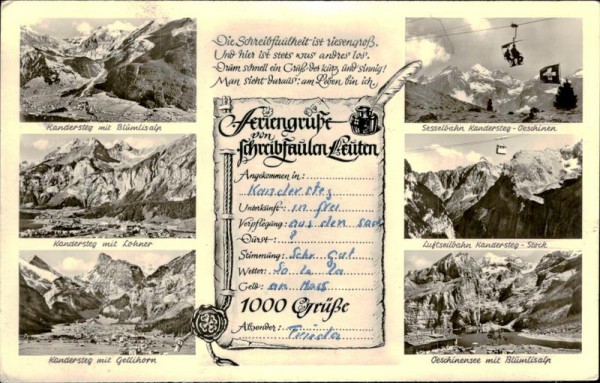 Die Schreibfaulheit ist riesengroß.
Und hier ist stets was andres los.
Drum schnell ein Gruß der kurz und sinnig!
Man sieht daraus: am Leben bin ich.
Feriengrüße
von
schreibfaulen Leuten
Angekommen in:
Kandersteg
Unterkunft: im frei
Verpflegung: aus dem Sack
Durst: ?
Stimmung: Sehr gut
Wetter: So la la
Geld: am
1000 Grüße
Absender:
Kandersteg mit Blümlisalp
Kandersteg mit Lohner
Kandersteg mit Gellihorn
Sesselbahn Kandersteg-Oeschinen
Luftseilbahn Kandersteg-Stock
Oeschinensee mit Blümlisalp